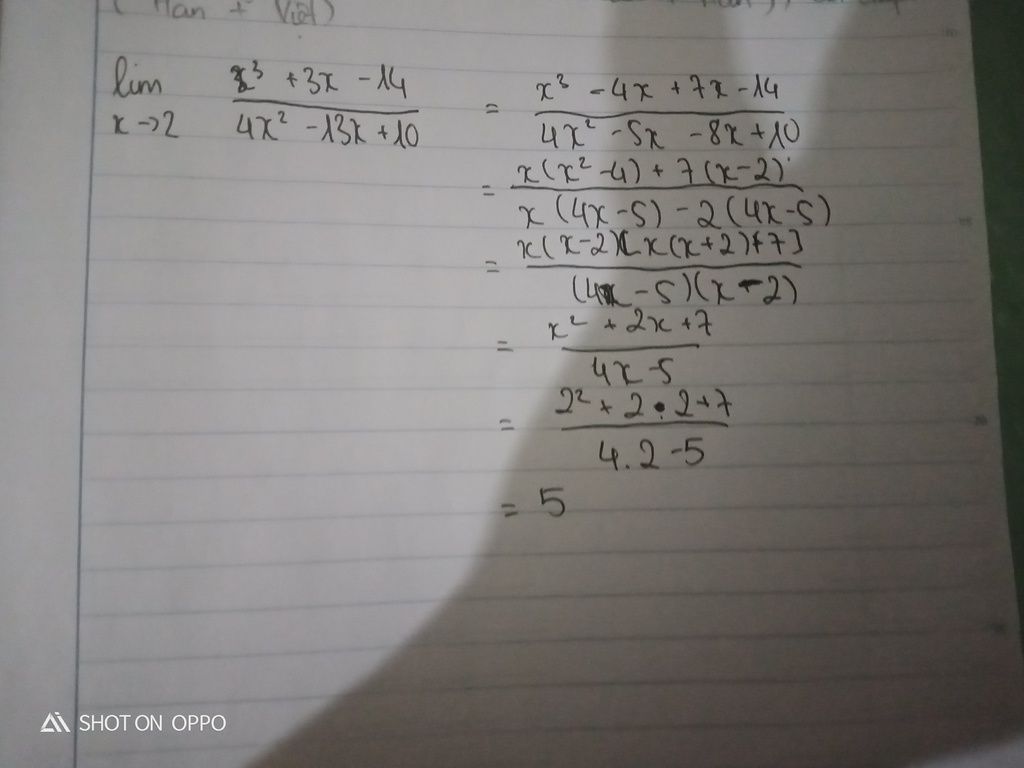 (Hán + Việt)
lim x→2 x³ + 3x - 14 / 4x² - 13x + 10 = x³ - 4x + 7x - 14 / 4x² - 5x - 8x + 10
= x(x² - 4) + 7(x - 2) / x(4x - 5) - 2(4x - 5)
= x(x - 2)[x(x + 2) + 7] / (4x - 5)(x - 2)
= x² + 2x + 7 / 4x - 5
= 2² + 2 . 2 + 7 / 4 . 2 - 5
= 5
SHOT ON OPPO